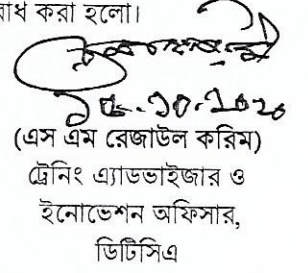 রোধ করা হলো।
১৫.১০.২০২০
(এস এম রেজাউল করিম)
ট্রেনিং এ্যাডভাইজার ও
ইনোভেশন অফিসার,
ডিটিসিএ